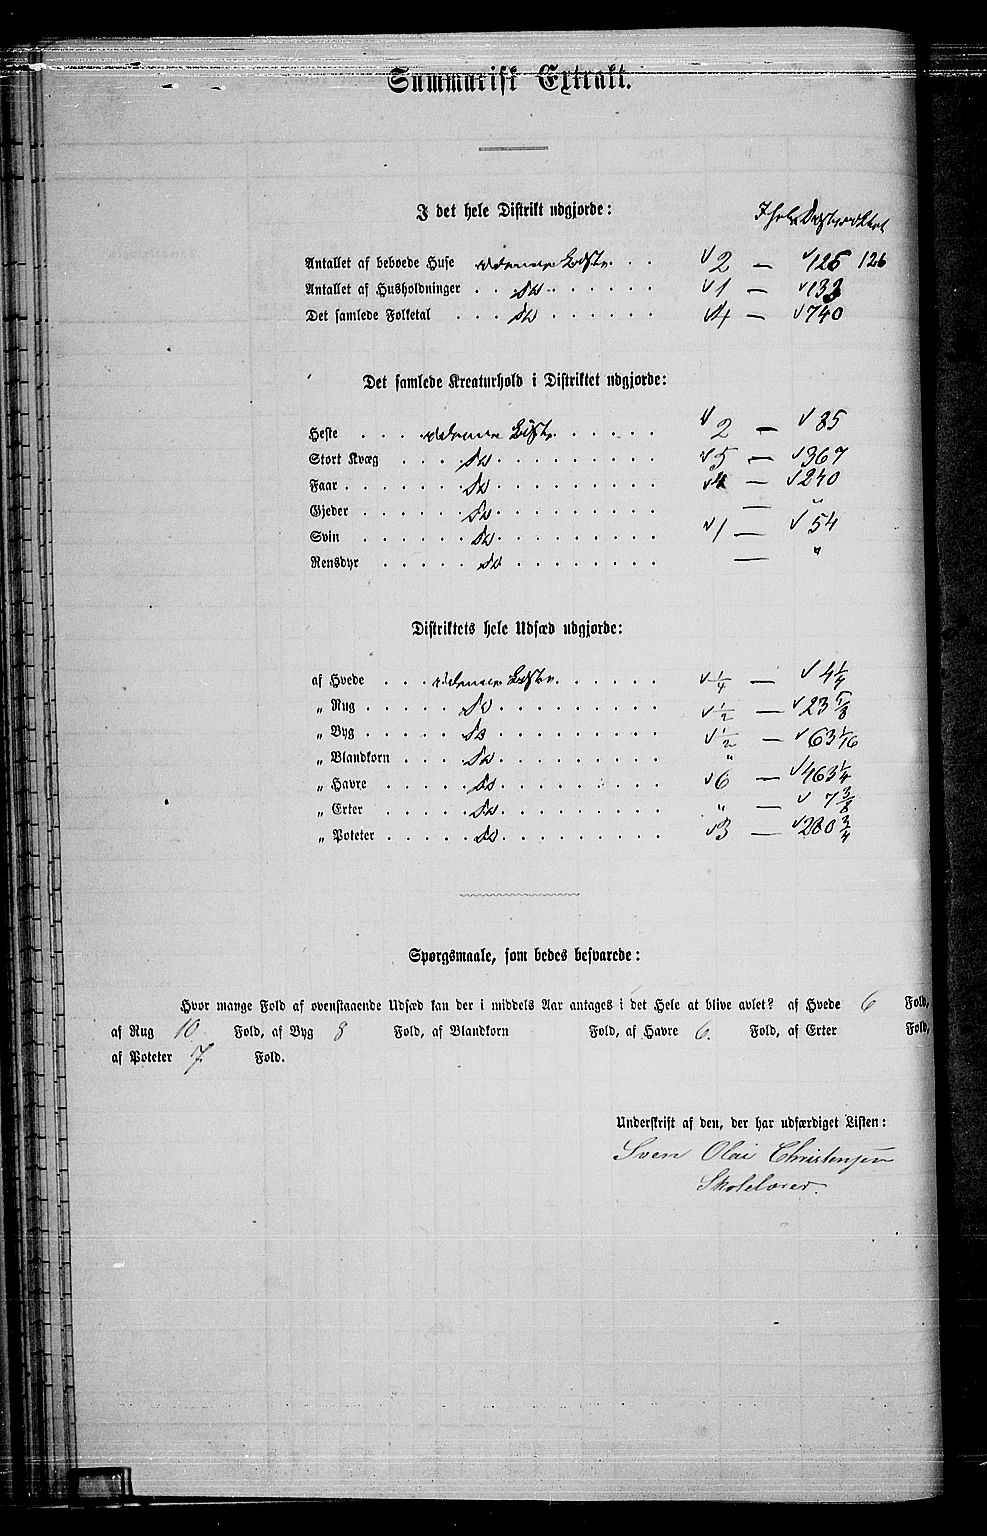 Summarisk Extrakt.
I det hele Distrikt udgjorde:
Antallet af beboede Huse . . 2 — 126 126
Antallet af Husholdninger . . Do . . . . . . 1 — 133
Det samlede Folketal . . . Do . . . . . . 4 — 740
Det samlede Kreaturhold i Distriktet udgjorde:
Heste . . . . 2 — 85
Stort Kvæg . . . Do . . . . . . 5 — 367
Faar . . . . . Do . . . . . . 4 — 240
Gjeder . . . . Do . . . . . . — „
Svin . . . . Do . . . . . . 1 — 54
Rensdyr . . . . Do . . . . . . — „
Distriktets hele Udsæd udgjorde:
af Hvede . . . 1/4 — 4 1/4
„ Rug . . . . . Do . . . . . . 1/2 — 23 5/8
„ Byg . . . . . Do . . . . . . 1/2 — 63 1/16
„ Blandkorn . . . Do . . . . . . „
„ Havre . . . . Do . . . . . . 6 — 463 1/4
„ Erter . . . . Do . . . . . . „ — 7 3/8
„ Poteter . . . . Do . . . . . . 3 — 280 3/4
Spørgsmaale, som bedes besvarede:
Hvor mange Fold af ovenstaaende Udsæd kan der i middels Aar antages i det Hele at blive avlet? af Hvede 6 Fold,
af Rug 10 Fold, af Byg 8 Fold, af Blandkorn Fold, af Havre 6. Fold, af Erter Fold,
af Poteter 7 Fold.
Underskrift af den, der har udfærdiget Listen:
Sven Olai Christensen
Skolelærer.